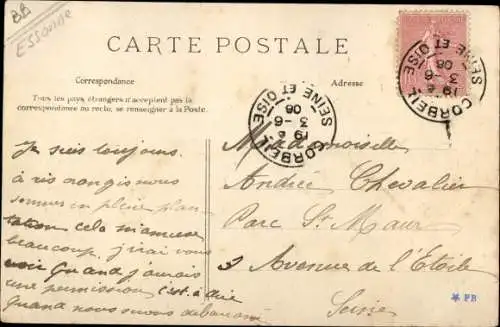 BB
ESSONNE
CARTE POSTALE
Correspondance
Adresse
Tous les pays étrangers n'acceptent pas la
correspondance au recto, se renseigner à la Poste.
CORBEIL
19 6
3-6
08
SEINE ET OISE
CORBEIL
19 6
3-6
08
SEINE ET OISE
Je suis toujours
à ris orangis nous
sommes en pleine plan-
tation cela m'amuse
beaucoup. j'irai vous
voir Quand j'aurais
une permission c'est à dire
Quand nous serons
Mademoiselle
Andrée Chevalier
Parc St Maur
3 Avenue de l'Etoile
Seine
PB